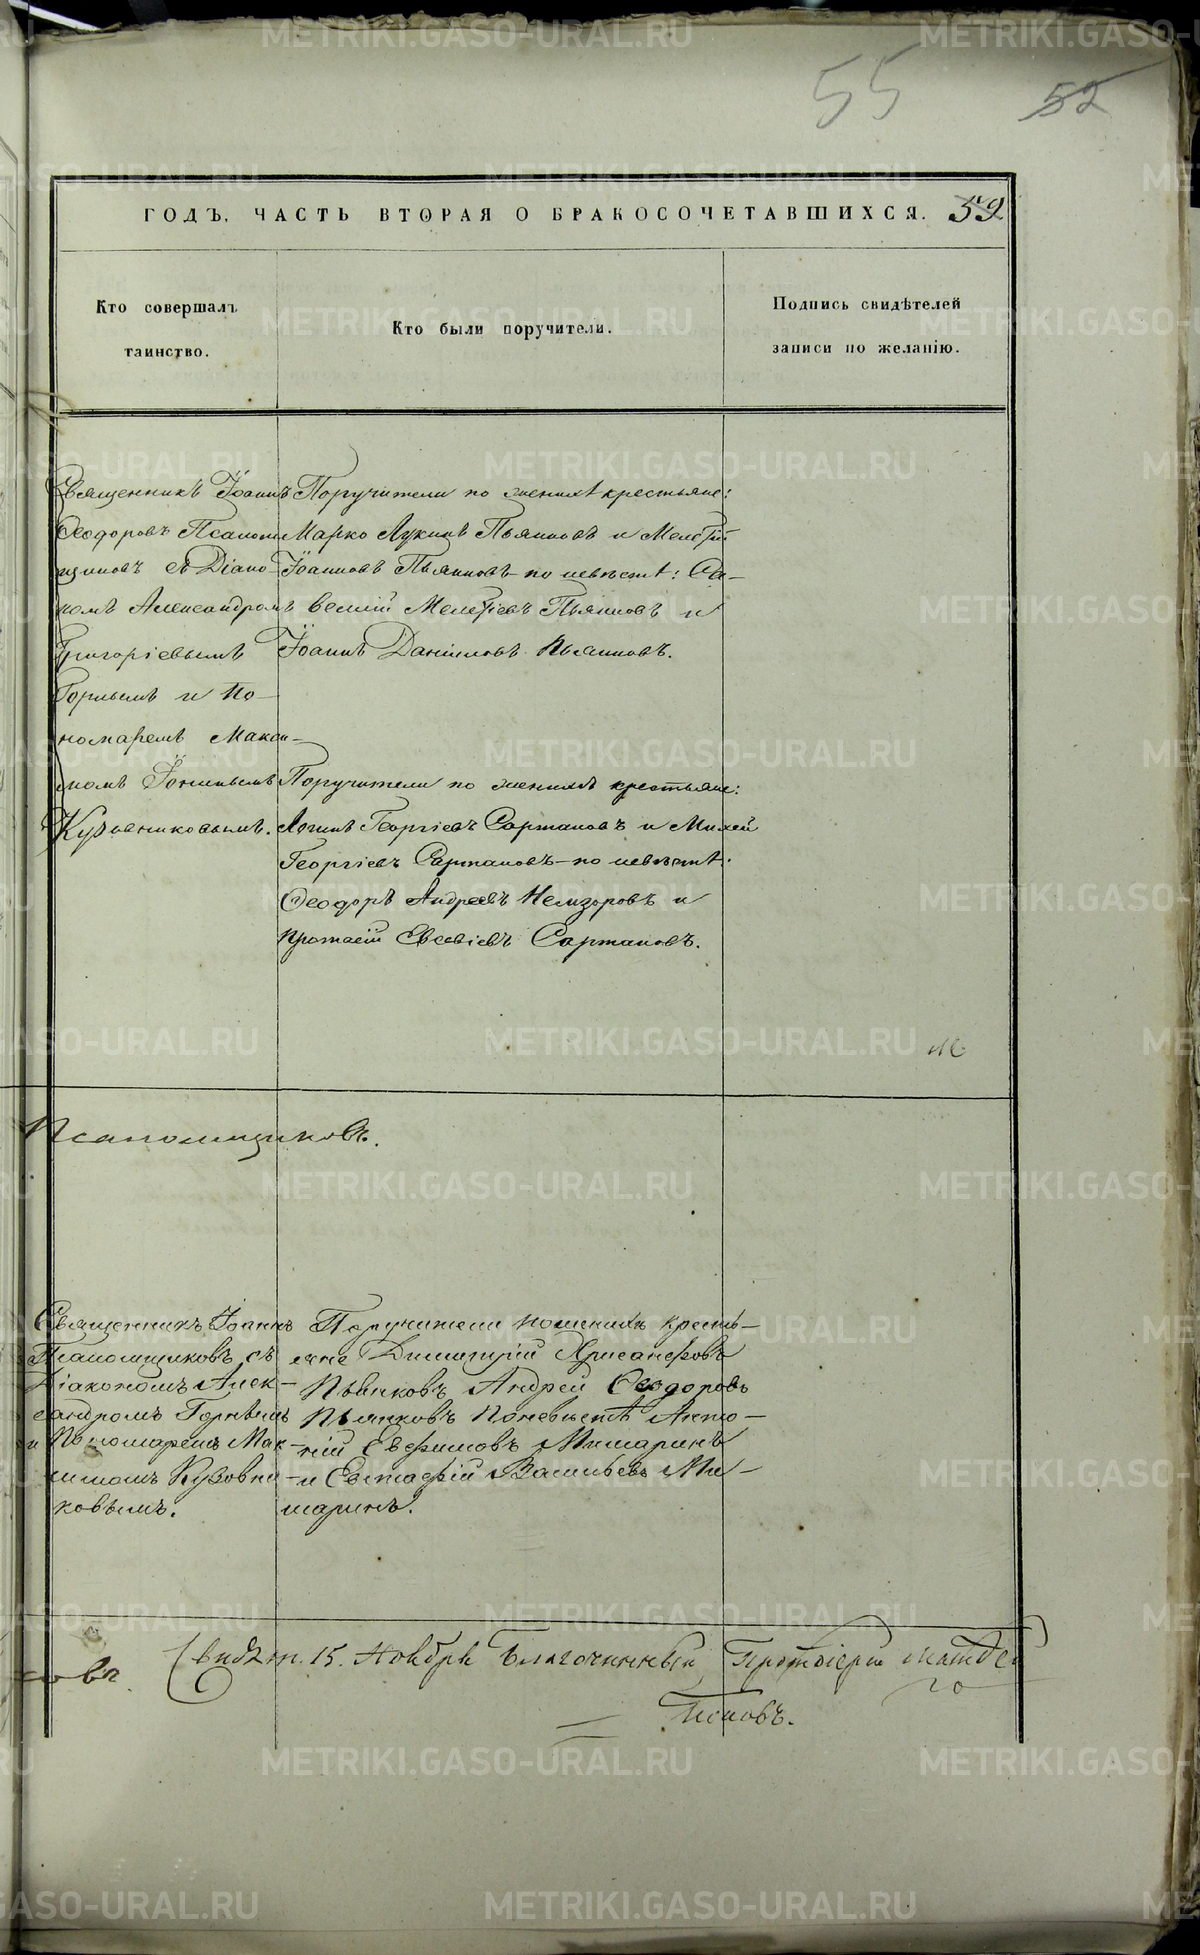 55
52
ГОДЪ, ЧАСТЬ ВТОРАЯ О БРАКОСОЧЕТАВШИХСЯ.
59
Кто совершалъ
таинство.
Кто были поручители.
Подпись свидѣтелей
записи по желанію.
Священникъ Іоаннъ
Ѳеодоровъ Псалом
щиковъ съ Діако
номъ Александромъ
Григорьевымъ
Горнымъ и По-
номаремъ Макси-
момъ
Кузовниковымъ.
Поручители по женихѣ крестьяне:
Марко Лукинъ Пьянковъ и Мелетій
Іоанновъ Пьянковъ по невѣстѣ: Са-
велій Мелетіевъ Пьянковъ и
Іоаннъ Даніиловъ Пьянковъ.
Поручители по женихѣ крестьяне:
Логинъ Георгіевъ Сартаковъ и Михей
Георгіевъ Сартаковъ по невѣстѣ:
Ѳеодоръ Андреевъ и
Протасій Евсевіевъ Сартаковъ.
Псаломщиковъ.
Священникъ Іоаннъ
Псаломщиковъ съ
Діакономъ Алек-
сандромъ Горнымъ
и Пономаремъ Мак-
симомъ Кузовни
ковымъ.
Поручители по женихѣ кресть-
яне Димитрій Хрисанфовъ
Пьянковъ Андрей Ѳеодоровъ
Пьянковъ по невѣстѣ Анто-
ній Евфимовъ Мишаринъ
и Евстафій Васильевъ Ми-
шаринъ.
Свидѣт. 15. Ноября Благочинный Протоіерей Матвей
Поповъ.
METRIKI.GASO-URAL.RU